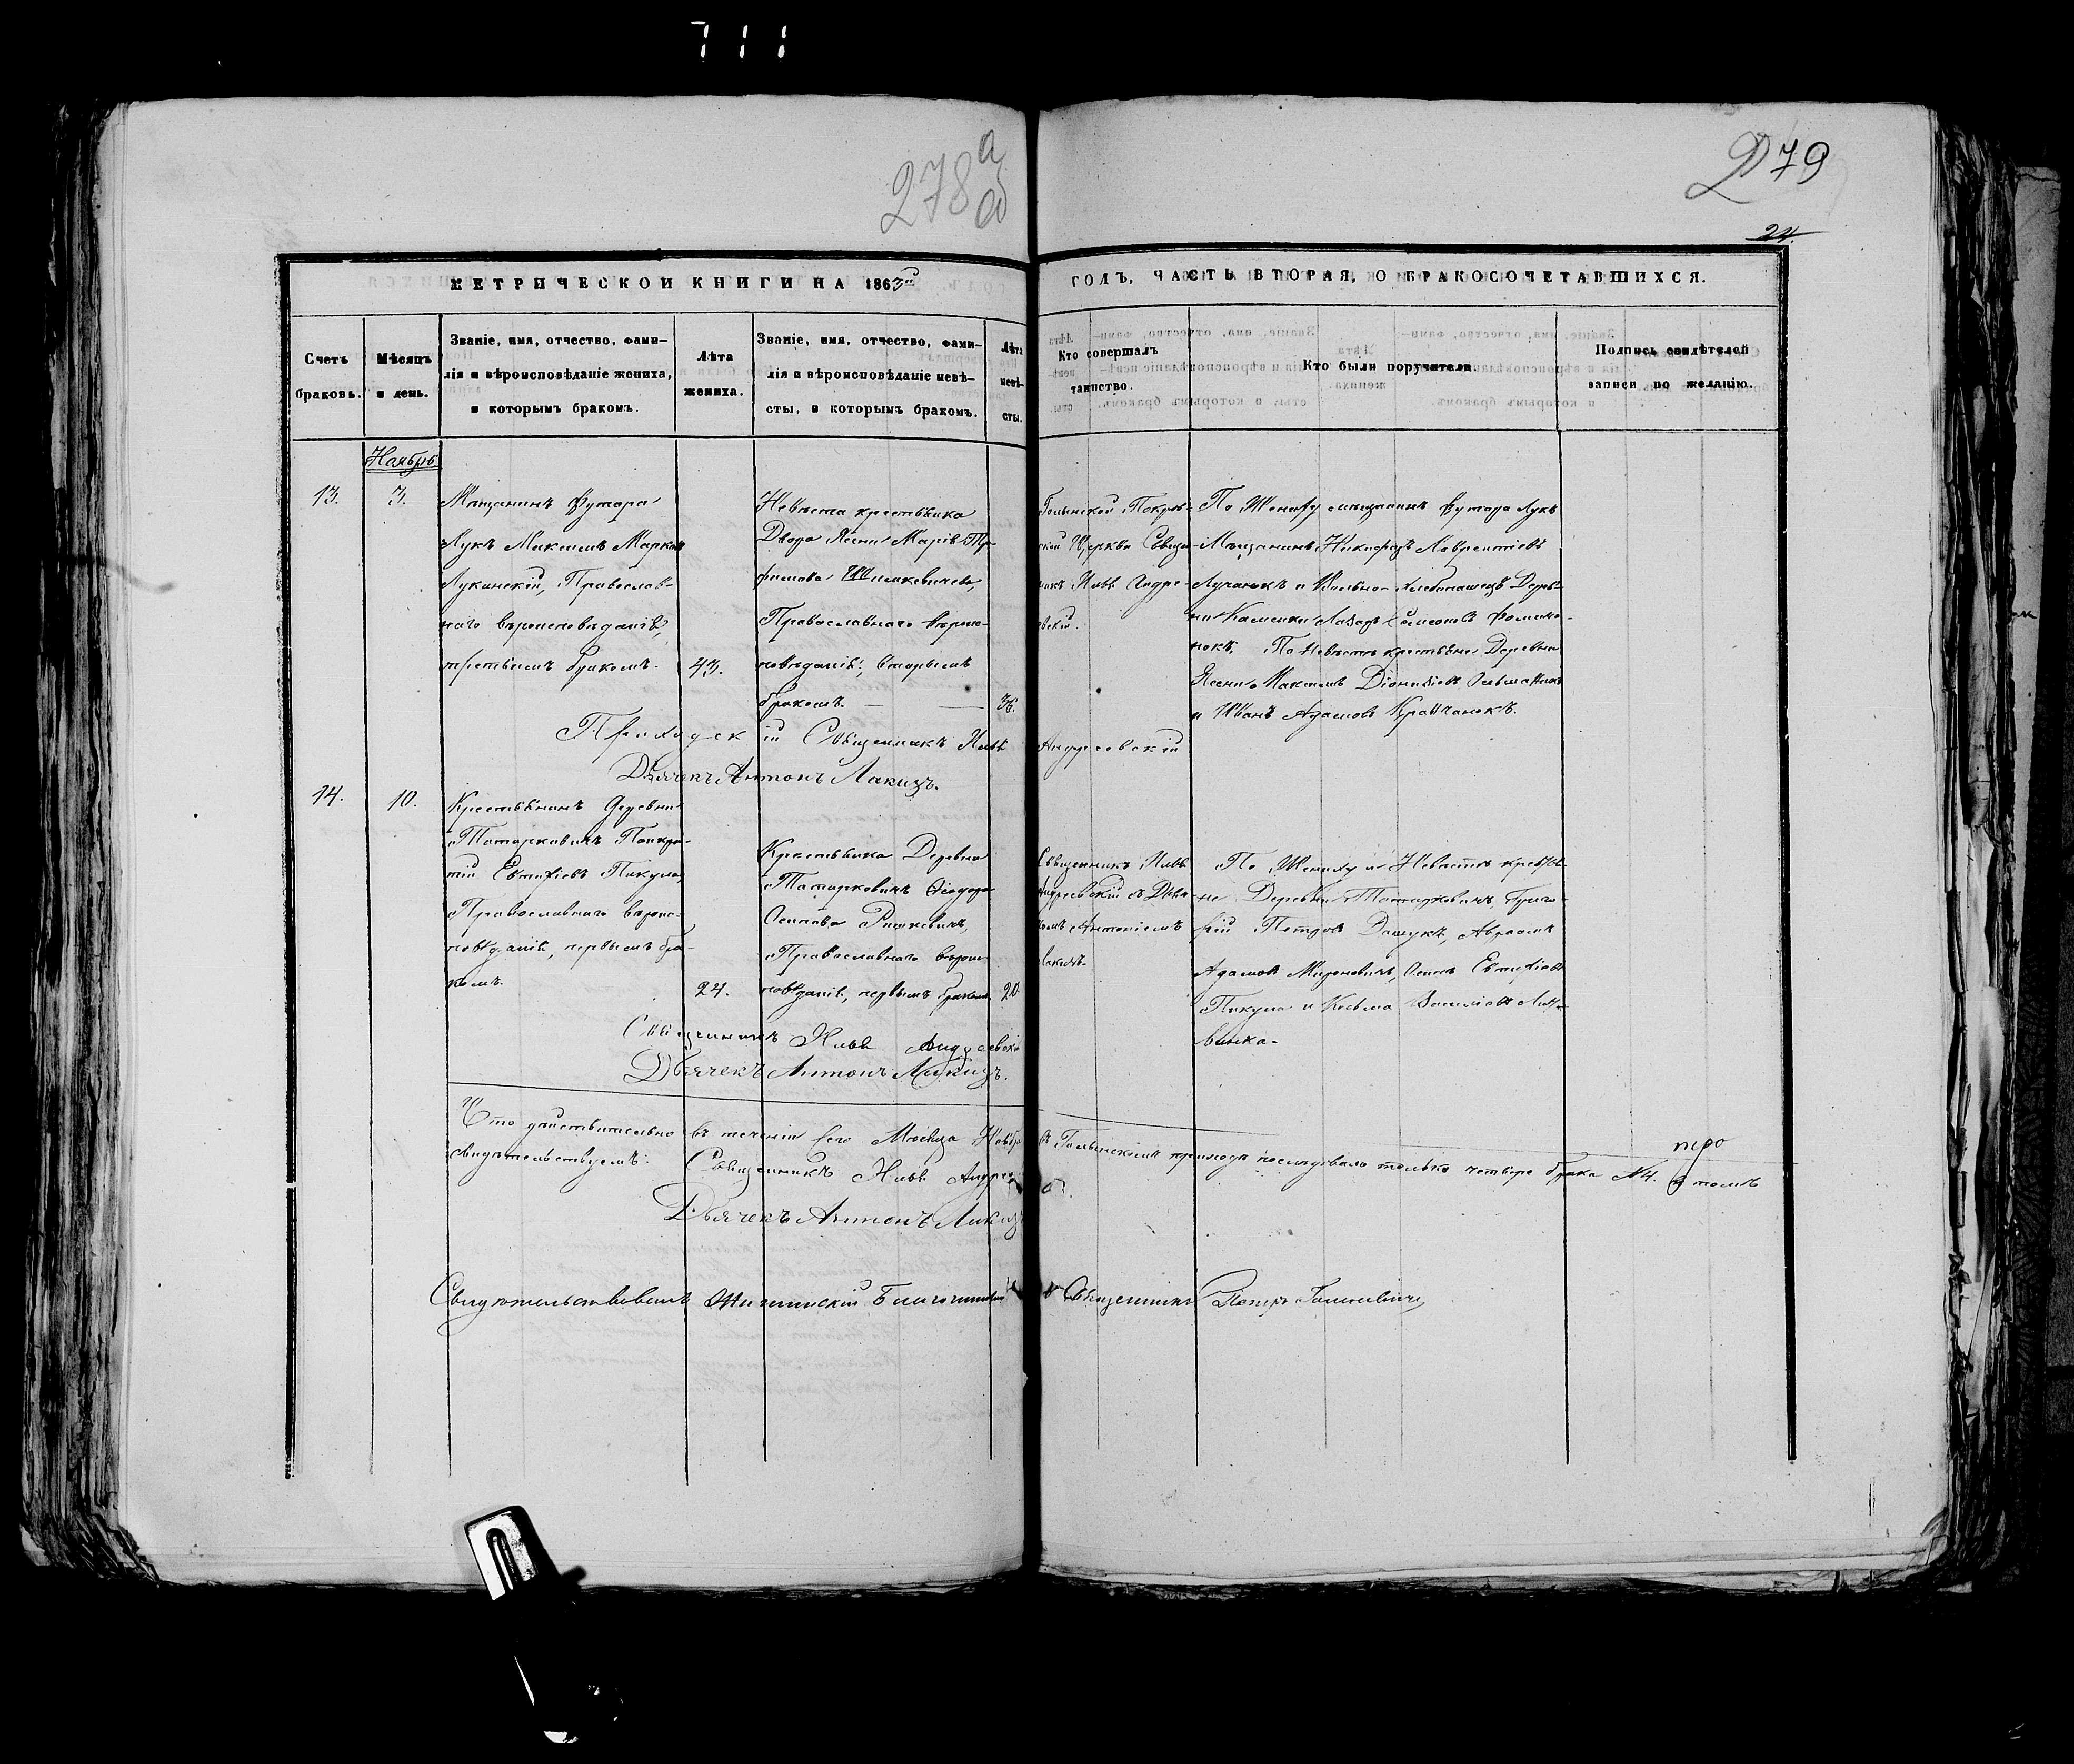 711
278 а
279
24.
МЕТРИЧЕСКОЙ КНИГИ НА 1863й
ГОДЪ, ЧАСТЬ ВТОРАЯ, О БРАКОСОЧЕТАВШИХСЯ.
Счетъ
браковъ.
Мѣсяцъ
и день.
Званіе, имя, отчество, фами-
лія и вѣроисповѣданіе жениха,
и которымъ бракомъ.
Лѣта
жениха.
Званіе, имя, отчество, фами-
лія и вѣроисповѣданіе невѣ-
сты, и которымъ бракомъ.
Лѣта
невѣ-
сты.
Кто совершалъ
таинство.
Кто были поручители.
Подпись свидѣтелей
записи по желанію.
Ноябрь
13.
3.
Мѣщанинъ Футора
Лукъ Максимъ Марковъ
Лучинскій, Православ-
наго вѣроисповѣданія,
третьимъ бракомъ.
43.
Невѣста крестьянка
Двора Ясени Марія Тро-
фимова Шимкевичева,
Православнаго вѣроис-
повѣданія, вторымъ
бракомъ.
36.
Голынской Покров-
ской Церкви Священ-
никъ Илья Андре-
евскій.
По Жениху мѣщанинъ Футора Лукъ
Мѣщанинъ Никифоръ Лаврентіевъ
Лучанокъ и Вольно-хлебопашецъ Дерев-
ни Каменки Лазарь Симеоновъ Фомино-
нокъ. По Невѣстѣ крестьяне Деревни
Ясени Максимъ Діонисіевъ
и Иванъ Адамовъ Кравчанокъ.
Приходскій Священникъ Илья Андреевскій
Дьячекъ Антонъ Лакизъ.
14.
10.
Крестьянинъ Деревни
Татарковичъ Панкра-
тій Евтихіевъ Пикула,
Православнаго вѣроис-
повѣданія, первымъ бра-
комъ.
24.
Крестьянка Деревни
Татарковичъ Ѳеодора
Осипова Рышкевичъ,
Православнаго вѣроис-
повѣданія, первымъ бракомъ.
20.
Священникъ Илья
Андреевскій съ Дьяч-
комъ Антоніемъ
Лакизъ.
По Жениху и Невѣстѣ крестья-
не Деревни Татарковичъ, Григо-
рій Петровъ Дашукъ, Авраамъ
Адамовъ Мироновичъ, Осипъ Евтихіевъ
Пикула и Косьма Василіевъ
Священникъ Илья Андреевскій
Дьячекъ Антонъ Лакизъ.
Что дѣйствительно въ теченіи сего Мѣсяца Ноября въ Голынскомъ приходѣ послѣдовало только четыре брака №4. въ томъ
свидѣтельствуемъ: Священникъ Илья Андреевскій
Дьячекъ Антонъ Лакизъ
Свидѣтельствовалъ Благочинный Священникъ Петръ